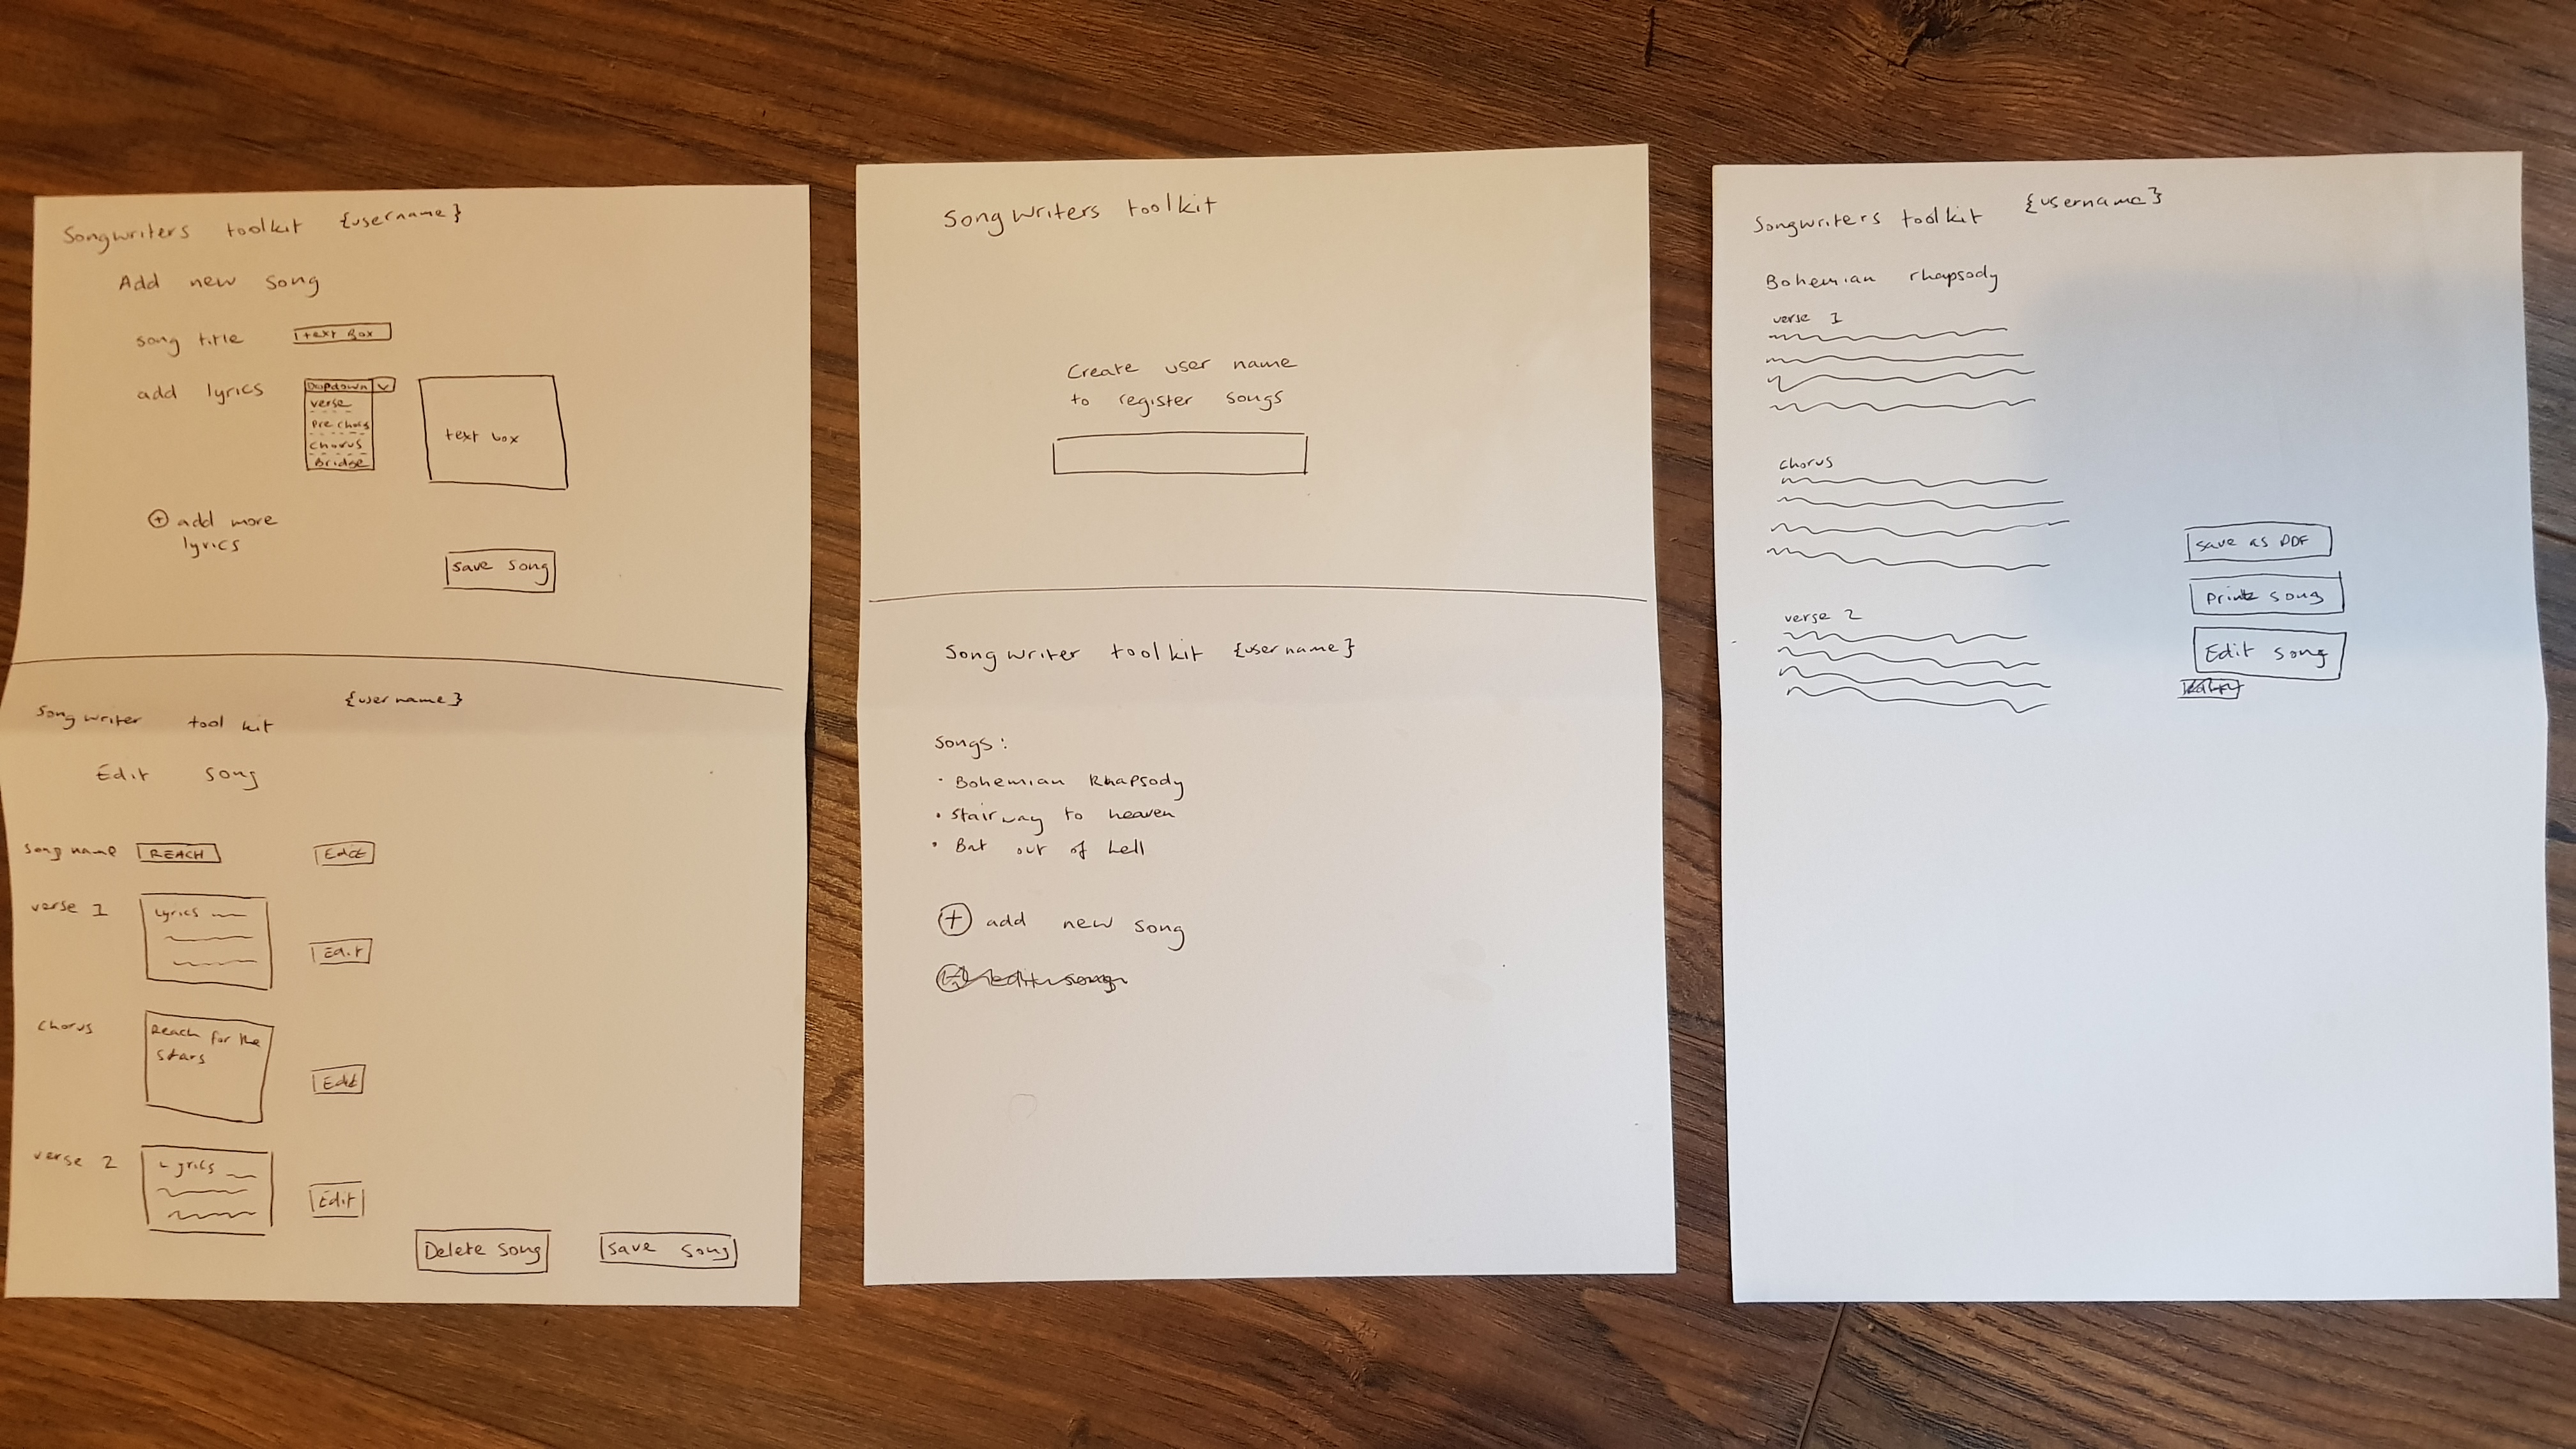 Songwriters toolkit {username}
Add new song
song title
text box
add lyrics
Dropdown v
verse
pre chorus
chorus
bridge
text box
+ add more
lyrics
save song
Songwriter tool kit {username}
Edit song
song name
REACH
Edit
verse 1
Lyrics
Edit
chorus
Reach for the
stars
Edit
verse 2
Lyrics
Edit
Delete song
save song
Songwriters toolkit
Create user name
to register songs
Songwriter toolkit {username}
songs:
• Bohemian Rhapsody
• stairway to heaven
• Bat out of hell
+ add new song
Songwriters toolkit {username}
Bohemian rhapsody
verse 1
chorus
verse 2
save as PDF
Print song
Edit song